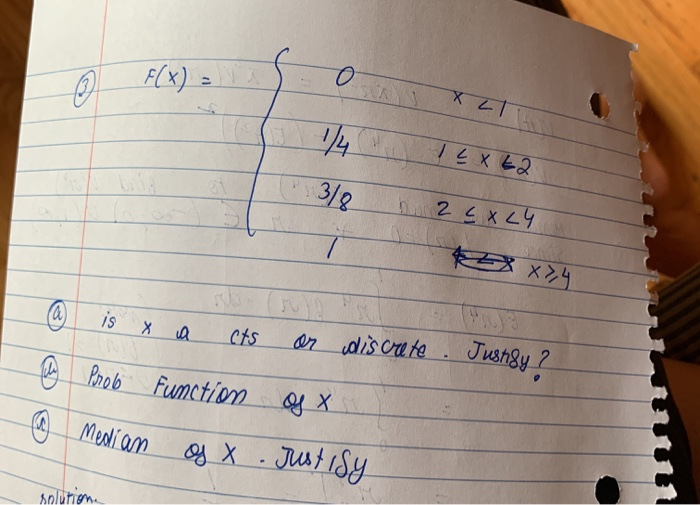 ③ F(x) = { 0 x < 1
1/4 1 ≤ x < 2
3/8 2 ≤ x < 4
1 x ≥ 4
ⓐ is x a cts or discrete. Justify?
Prob Function of x
Median of x. Justify
solution.